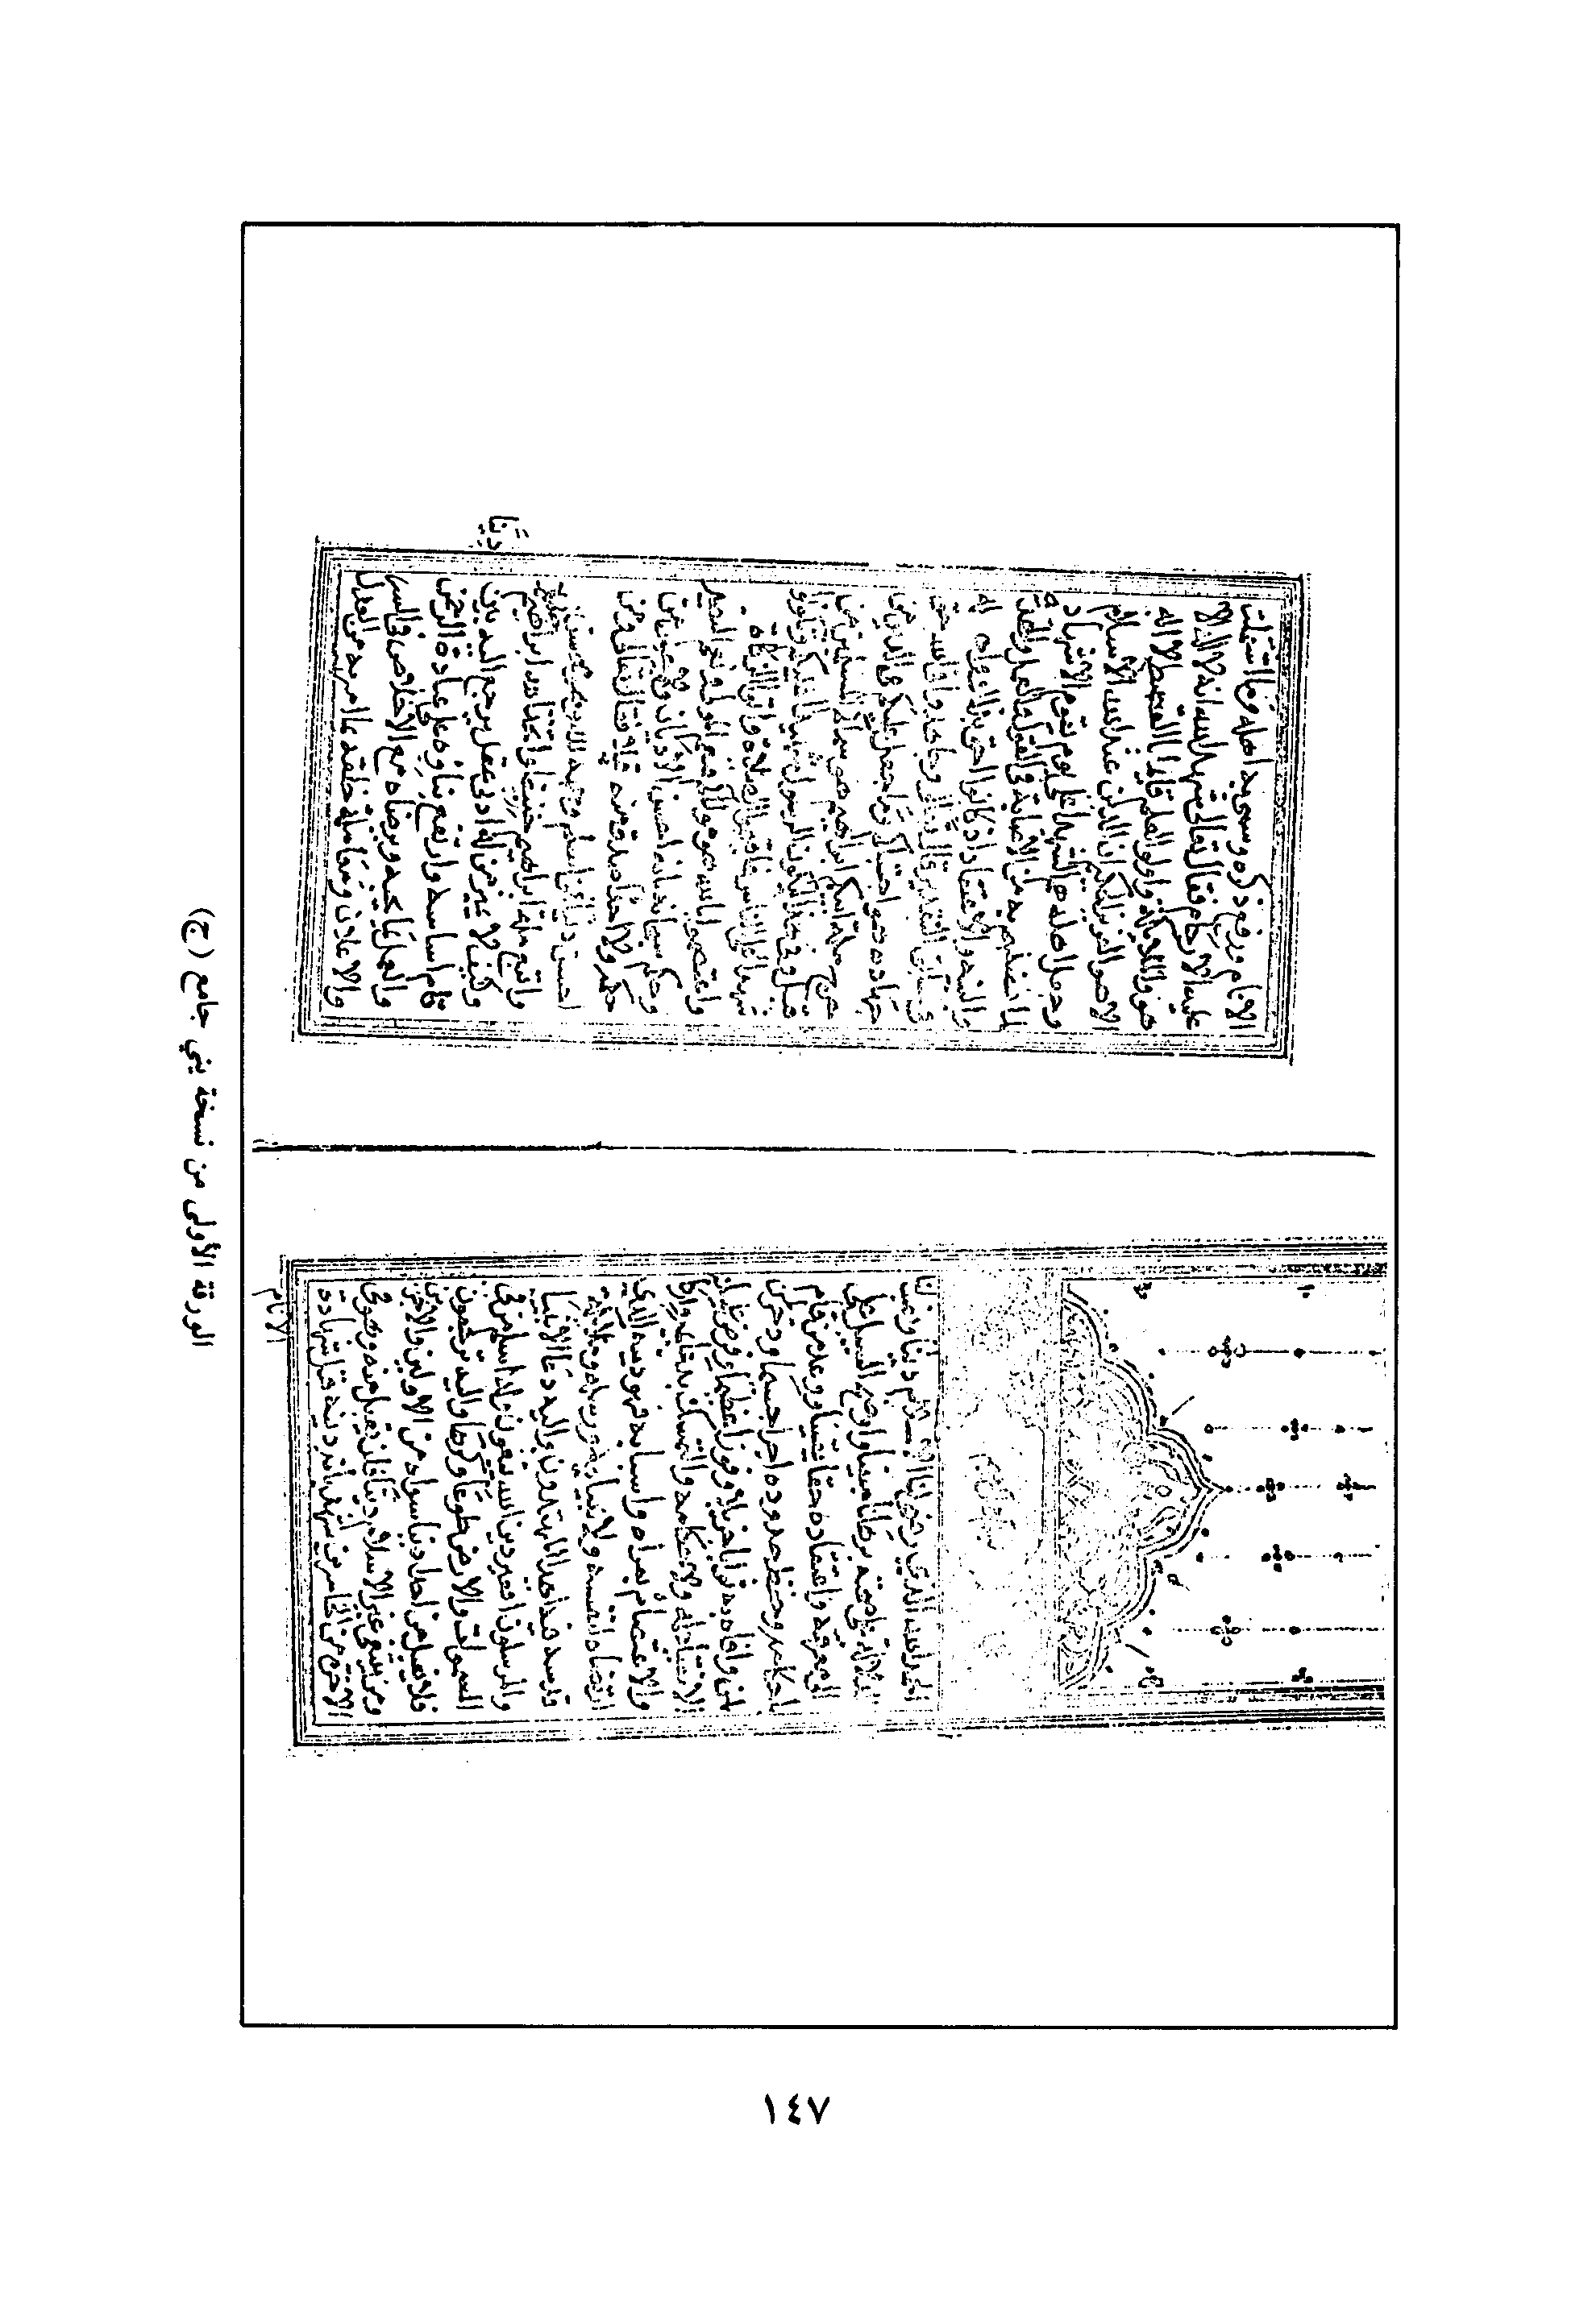 الورقة الأولى من نسخة يني جامع (ج)
الحمد لله الذي رضي لنا الاسلام دينا ونصب لنا
الدلالة على صحته برهانا مبينا واوضح السبيل
الى معرفته واعتقاده حقا يقينا ووعد من قام
باحكامه وحفظ حدوده اجرا جسيما وذخر
لمن وافاه به ثوابا جزيلا وفوزا عظيما وفرض علينا
الانقياد له ولاحكامه والتمسك بدعائمه واركانه
والاعتصام بعراه واسبابه فهو دينه الذي
ارتضاه لنفسه ولانبيائه ورسله وملائكة
قدسه فبه اهتدى المهتدون واليه دعا الانبياء
والمرسلون افغير دين الله يبغون وله اسلم من في
السموات والارض طوعا وكرها واليه ترجعون
فلا يقبل من احد دينا سواه من الاولين والاخرين
ومن يبتغ غير الاسلام دينا فلن يقبل منه وهو في
الاخرة من الخاسرين شهد بانه دينه قبل شهادة
الانام
الانام ورفع ذكره وسمى به اهله وما اشتملت
عليه الارحام فقال تعالى شهد الله انه لا اله الا
هو والملائكة واولوا العلم قائما بالقسط لا اله
الا هو العزيز الحكيم ان الدين عند الله الاسلام
وجعل اهله هم الشهداء على يوم يقوم الاشهاد
لما فضلهم به من الاصابة في القول والعمل
والنية والاعتقاد اذ كانوا احق بذلك
في سابق التقدير فقال تعالى وجاهدوا في الله حق
جهاده هو اجتباكم وما جعل عليكم في الدين من
حرج ملة ابيكم ابراهيم هو سماكم المسلمين من
قبل وفي هذا ليكون الرسول شهيدا عليكم وتكونوا
شهداء على الناس فاقيموا الصلاة واتوا الزكاة
واعتصموا بالله هو مولاكم فنعم المولى ونعم النصير
وحكم سبحانه بانه احسن الاديان ولا احسن من
حكمه ولا اصدق منه قيلا فقال تعالى ومن
احسن دينا ممن اسلم وجهه لله وهو محسن
واتبع ملة ابراهيم حنيفا واتخذ الله ابراهيم خليلا
وكيف لا يميز من له ادنى عقل يرجع اليه بين دين
قام اساسه وارتفع بناؤه على عبادة الرحمن
والعمل بما يحبه ويرضاه مع الاخلاص في السر
والاعلان ومعاملة خلقه بما امر به من العدل
١٤٧